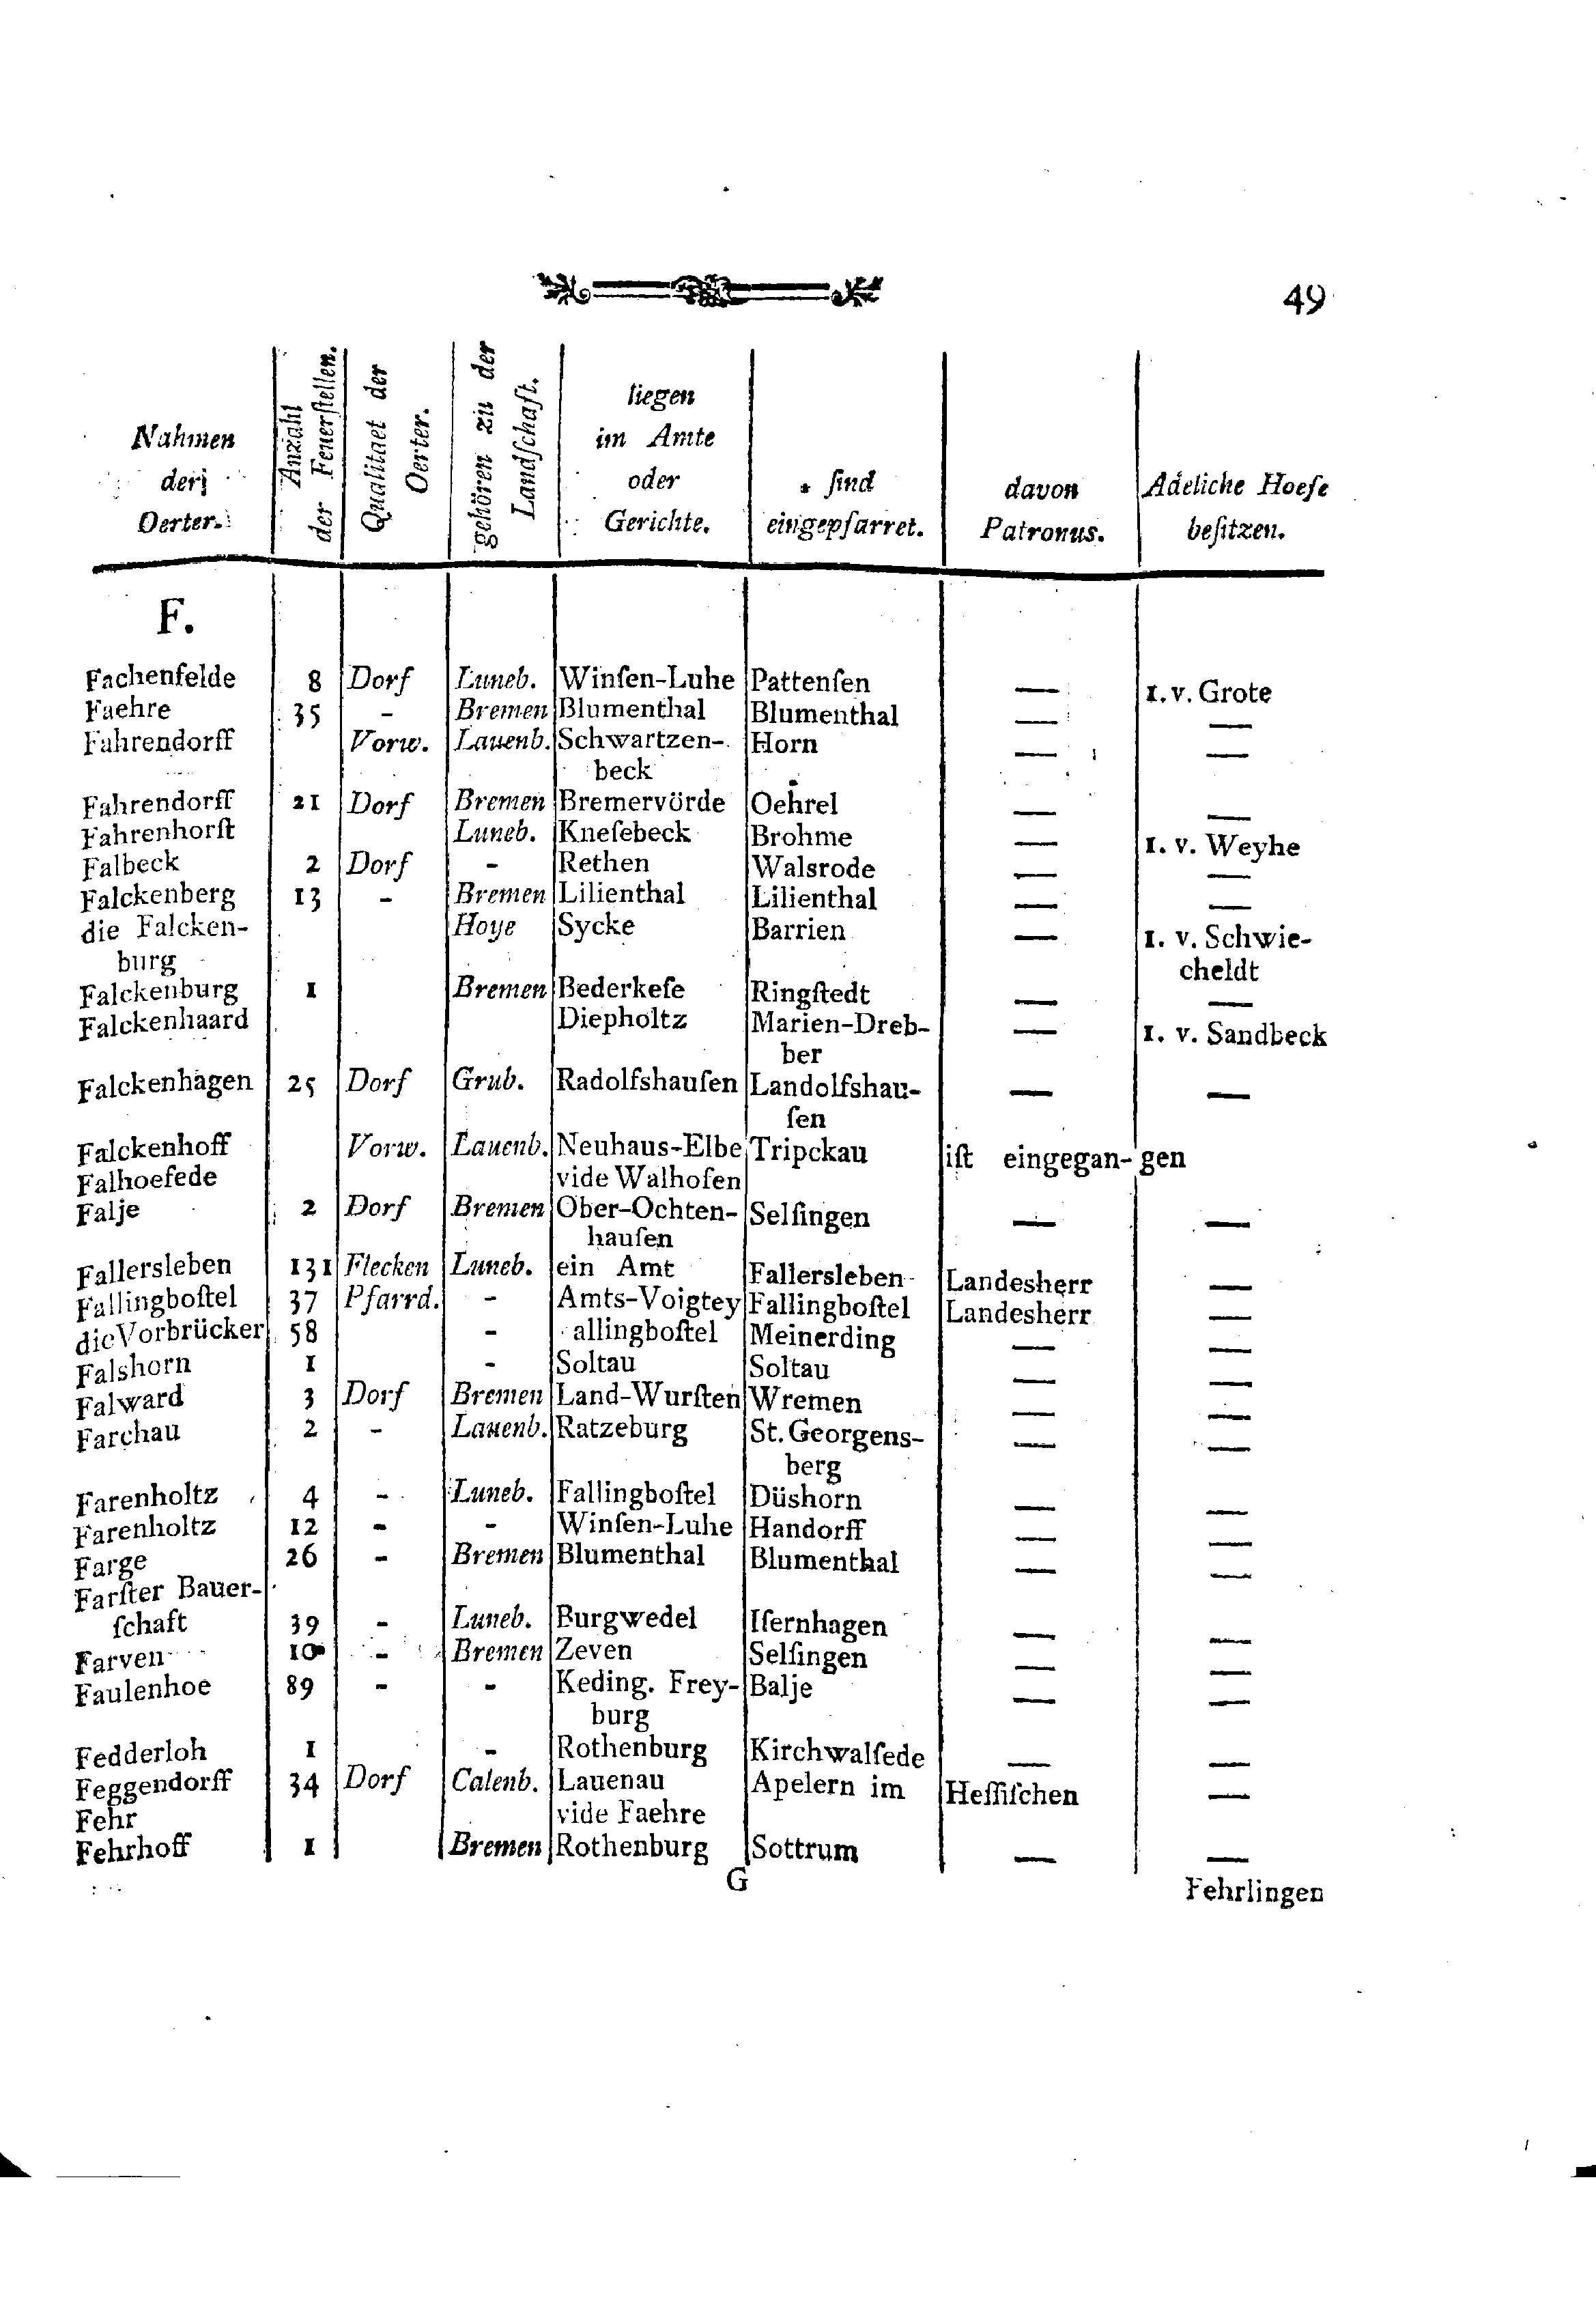 49
Nahmen der Oerter. | Anzahl der Feuerſtellen. | Qualitaet der Oerter. | gehören zu der Landſchaft. | liegen im Amte oder Gerichte. | ſind eingepfarret. | davon Patronus. | Adeliche Hoefe beſitzen.
F.
Fachenfelde 8 Dorf Luneb. Winſen-Luhe Pattenſen — 1. v. Grote
Faehre 35 - Bremen Blumenthal Blumenthal — —
Fahrendorff Vorw. Lauenb. Schwartzen- Horn — —
beck
Fahrendorff 21 Dorf Bremen Bremervörde Oehrel — —
Fahrenhorſt Luneb. Kneſebeck Brohme — 1. v. Weyhe
Falbeck 2 Dorf - Rethen Walsrode — —
Falckenberg 13 - Bremen Lilienthal Lilienthal — —
die Falcken- Hoye Sycke Barrien — 1. v. Schwie-
burg cheldt
Falckenburg 1 Bremen Bederkeſe Ringſtedt — —
Falckenhaard Diepholtz Marien-Dreb- — 1. v. Sandbeck
ber
Falckenhagen 25 Dorf Grub. Radolfshauſen Landolfshau- — —
ſen
Falckenhoff Vorw. Lauenb. Neuhaus-Elbe Tripckau iſt eingegan- gen
Falhoefede vide Walhofen
Falje 2 Dorf Bremen Ober-Ochten- Selſingen — —
hauſen
Fallersleben 131 Flecken Luneb. ein Amt Fallersleben Landesherr —
Fallingboſtel 37 Pfarrd. - Amts-Voigtey Fallingboſtel Landesherr —
die Vorbrücker 58 - allingboſtel Meinerding — —
Falshorn 1 - Soltau Soltau — —
Falward 3 Dorf Bremen Land-Wurſten Wremen — —
Farchau 2 - Lauenb. Ratzeburg St. Georgens- — —
berg
Farenholtz 4 - Luneb. Fallingboſtel Düshorn — —
Farenholtz 12 - - Winſen-Luhe Handorff — —
Farge 26 - Bremen Blumenthal Blumenthal — —
Farſter Bauer-
ſchaft 39 - Luneb. Burgwedel Iſernhagen — —
Farven 10 - Bremen Zeven Selſingen — —
Faulenhoe 89 - - Keding. Frey- Balje — —
burg
Fedderloh 1 - Rothenburg Kirchwalſede — —
Feggendorff 34 Dorf Calenb. Lauenau Apelern im Heſſiſchen —
Fehr vide Faehre
Fehrhoff 1 Bremen Rothenburg Sottrum — —
G
Fehrlingen